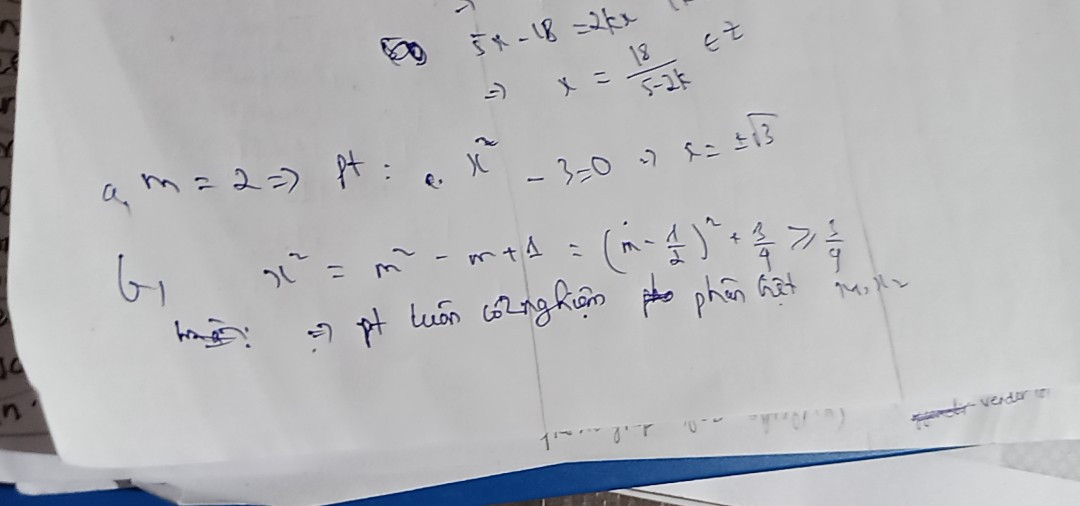 5x - 18 = 2kx
=> x = 18/(5-2k) ∈ Z
a, m = 2 => pt : x² - 3=0 => x = ±√3
b, x² = m² - m + 1 = (m - 1/2)² + 3/4 ≥ 3/4
=> pt luôn có 2 nghiệm phân biệt x₁, x₂